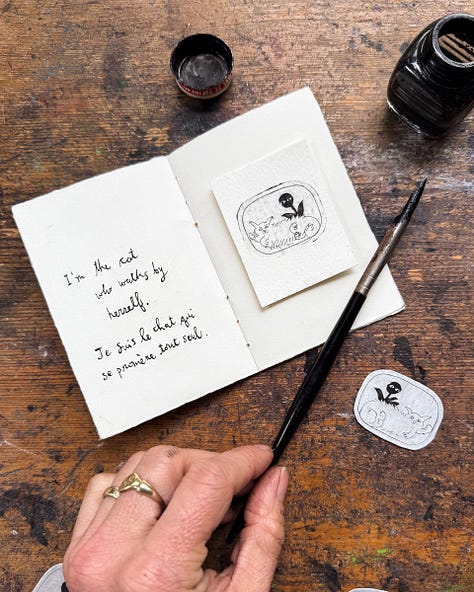 I'm the cat
who walks by
herself.
Je suis le chat qui
se promène tout seul.